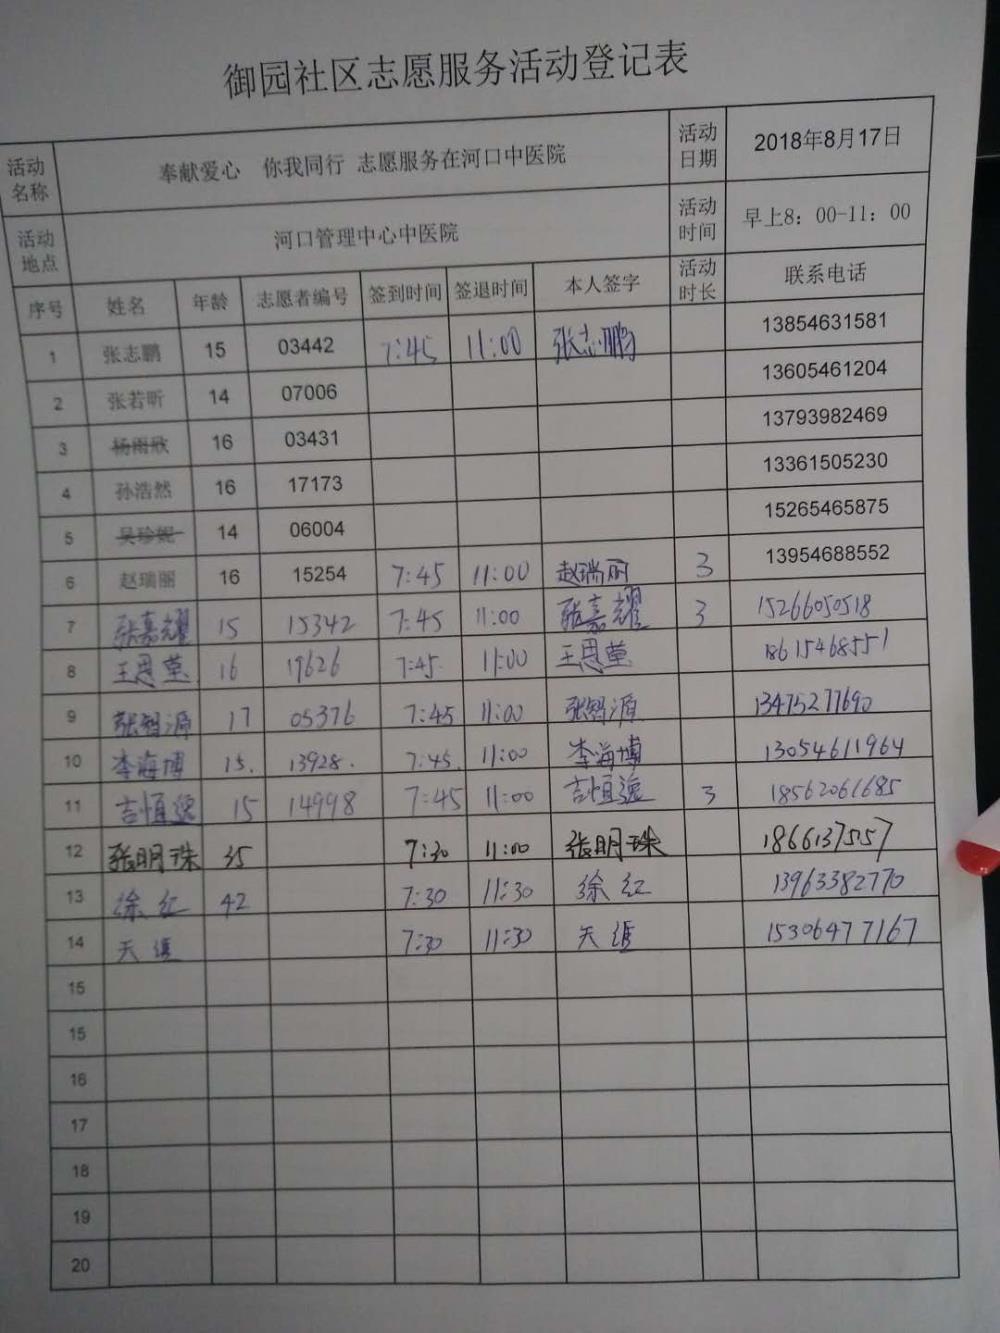 御园社区志愿服务活动登记表
活动名称 奉献爱心 你我同行 志愿服务在河口中医院 活动日期 2018年8月17日
活动地点 河口管理中心中医院 活动时间 早上8：00-11：00
序号 姓名 年龄 志愿者编号 签到时间 签退时间 本人签字 活动时长 联系电话
1 张志鹏 15 03442 7:45 11:00 张志鹏 13854631581
2 张若昕 14 07006 13605461204
3 杨雨欣 16 03431 13793982469
4 孙浩然 16 17173 13361505230
5 吴珍妮 14 06004 15265465875
6 赵瑞丽 16 15254 7:45 11:00 赵瑞丽 3 13954688552
7 张嘉耀 15 15342 7:45 11:00 张嘉耀 3 15266050518
8 王恩莹 16 19626 7:45 11:00 王恩莹 18615468551
9 张智源 17 05376 7:45 11:00 张智源 13475277690
10 李海博 15. 13928. 7:45. 11:00 李海博 13054611964
11 吉恒逸 15 14998 7:45 11:00 吉恒逸 3 18562061685
12 张明珠 35 7:30 11:00 张明珠
13 徐红 42 7:30 11:30 徐红 13963382770
14 天涯 7:30 11:30 天涯 15306477167
15
15
16
17
18
19
20